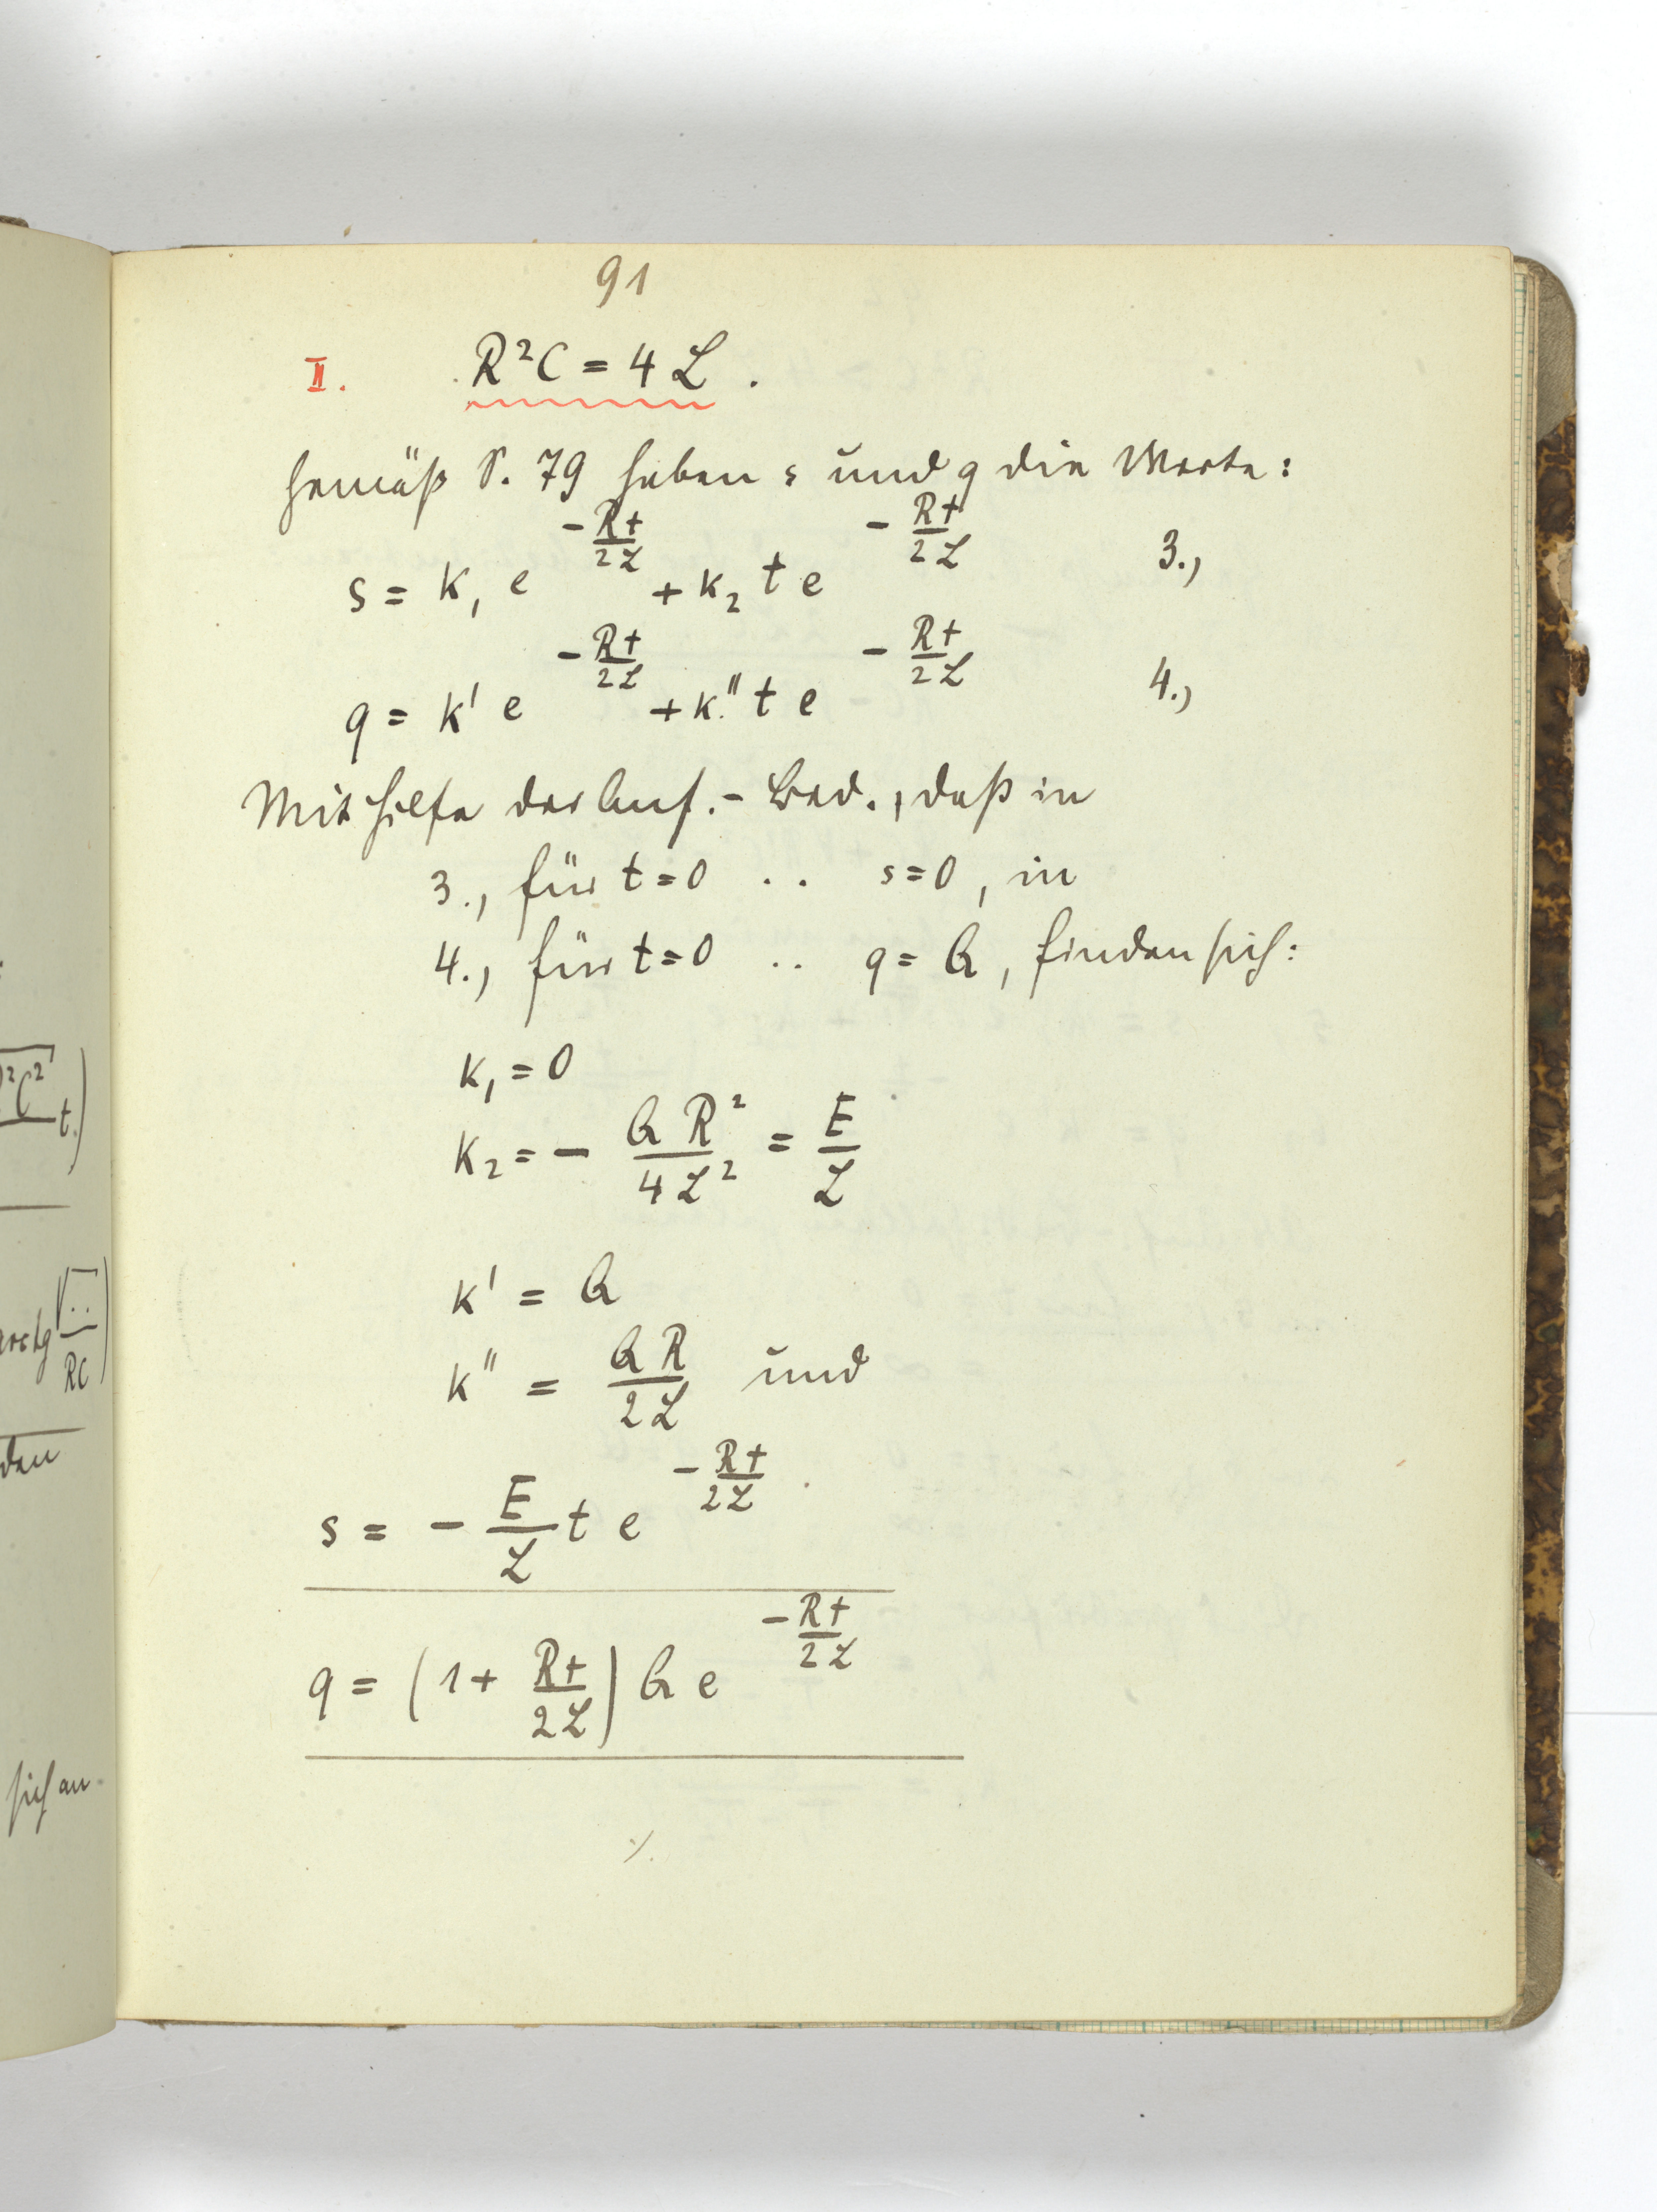 91
II. R²C = 4 L.
Gemäß S. 79 haben s und q die Werte:
s = k₁ e^(-Rt/2L) + k₂ t e^(-Rt/2L) 3.,
q = k' e^(-Rt/2L) + k'' t e^(-Rt/2L) 4.,
Mit Hilfe der Anf.-Bed., daß in
3., für t=0 .. s=0, in
4., für t=0 .. q=Q, finden sich:
k₁ = 0
k₂ = - QR²/4L² = E/L
k' = Q
k'' = QR/2L und
s = - E/L t e^(-Rt/2L)
q = (1 + Rt/2L) Q e^(-Rt/2L)
./.